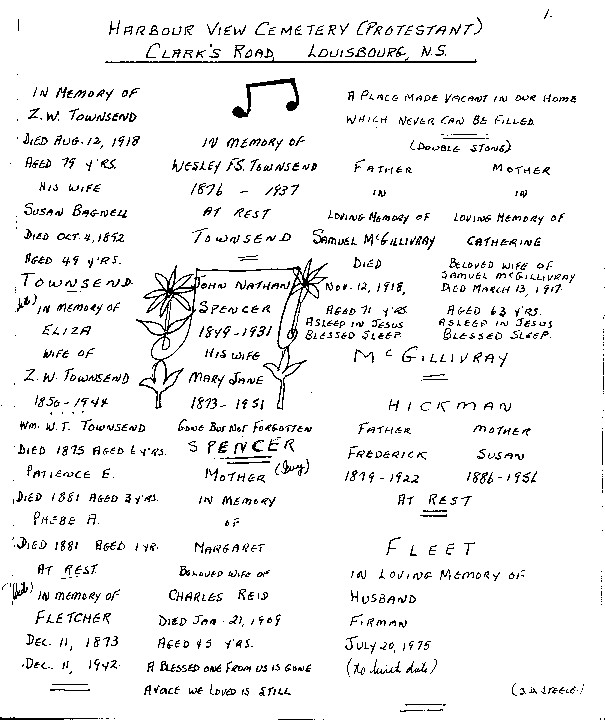 1.
HARBOUR VIEW CEMETERY (PROTESTANT)
CLARK'S ROAD, LOUISBOURG, N.S.
IN MEMORY OF
Z.W. TOWNSEND
DIED AUG. 12, 1918
AGED 79 Y'RS.
HIS WIFE
SUSAN BAGNELL
DIED OCT. 4, 1892
AGED 49 Y'RS.
TOWNSEND
IN MEMORY OF
ELIZA
WIFE OF
Z.W. TOWNSEND
1850-1944
WM. W.T. TOWNSEND
DIED 1875 AGED 6 YRS.
PATIENCE E.
DIED 1881 AGED 3 YRS.
PHEBE A.
DIED 1881 AGED 1 YR.
AT REST
IN MEMORY OF
FLETCHER
DEC. 11, 1873
DEC. 11, 1942.
IN MEMORY OF
WESLEY F.S. TOWNSEND
1876 - 1937
AT REST
TOWNSEND
JOHN NATHAN
SPENCER
1849-1931
HIS WIFE
MARY JANE
1873-1951
GONE BUT NOT FORGOTTEN
SPENCER
MOTHER
IN MEMORY
OF
MARGARET
BELOVED WIFE OF
CHARLES REID
DIED JAN. 21, 1909
AGED 45 Y'RS.
A BLESSED ONE FROM US IS GONE
A VOICE WE LOVED IS STILL
A PLACE MADE VACANT IN OUR HOME
WHICH NEVER CAN BE FILLED
(DOUBLE STONE)
FATHER MOTHER
IN IN
LOVING MEMORY OF LOVING MEMORY OF
SAMUEL McGILLIVRAY CATHERINE
DIED BELOVED WIFE OF
SAMUEL McGILLIVRAY
NOV. 12, 1918, DIED MARCH 13, 1917
AGED 71 Y'RS. AGED 63 Y'RS.
ASLEEP IN JESUS ASLEEP IN JESUS
BLESSED SLEEP. BLESSED SLEEP.
McGILLIVRAY
HICKMAN
FATHER MOTHER
FREDERICK SUSAN
1879-1922 1886-1956
AT REST
FLEET
IN LOVING MEMORY OF
HUSBAND
FIRMAN
JULY 20, 1975
(no birth date)
(J.D. STEELE.)